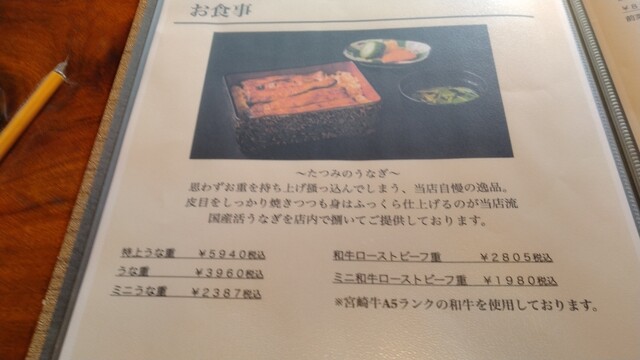 お食事
～たつみのうなぎ～
思わずお重を持ち上げ掻っ込んでしまう、当店自慢の逸品。
皮目をしっかり焼きつつも身はふっくら仕上げるのが当店流
国産活うなぎを店内で捌いてご提供しております。
特上うな重 ￥5940税込
うな重 ￥3960税込
ミニうな重 ￥2387税込
和牛ローストビーフ重 ￥2805税込
ミニ和牛ローストビーフ重 ￥1980税込
※宮崎牛A5ランクの和牛を使用しております。